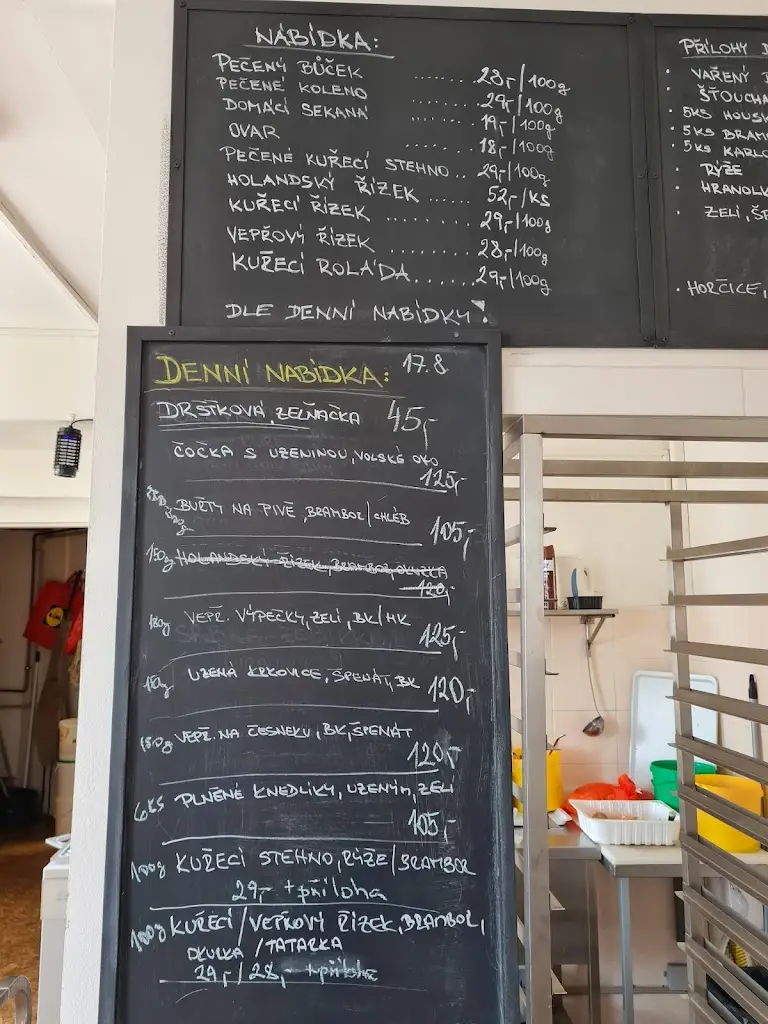 NABÍDKA:
PEČENÝ BŮČEK ....... 28,-/100g
PEČENÉ KOLENO ....... 29,-/100g
DOMÁCÍ SEKANÁ ....... 19,-/100g
OVAR ....... 18,-/100g
PEČENÉ KUŘECÍ STEHNO .. 29,-/100g
HOLANDSKÝ ŘÍZEK ...... 52,-/KS
KUŘECÍ ŘÍZEK ........ 29,-/100g
VEPŘOVÝ ŘÍZEK ........ 28,-/100g
KUŘECÍ ROLÁDA ....... 29,-/100g
DLE DENNÍ NABÍDKY!
PŘÍLOHY
• VAŘENÝ
• ŠŤOUCHA
• 5KS HOUSK
• 5KS BRAM
• 5KS KARLO
• RÝŽE
• HRANOLK
• ZELÍ, ŠP
• HOŘČICE,
DENNÍ NABÍDKA: 17.8
DRŠŤKOVÁ, ZELŇAČKA 45,-
ČOČKA S UZENINOU, VOLSKÉ OKO
125,-
BUŘTY NA PIVĚ, BRAMBOR/CHLÉB 105,-
150g HOLANDSKÝ ŘÍZEK, BRAMBOR, OKURKA
120,-
180g VEPŘ. VÝPEČKY, ZELÍ, BK/HK
125,-
150g UZENÁ KRKOVICE, ŠPENÁT, BK 120,-
150g VEPŘ. NA ČESNEKU, BK, ŠPENÁT
120,-
6KS PLNĚNÉ KNEDLÍKY, UZENÝM, ZELÍ
105,-
100g KUŘECÍ STEHNO, RÝŽE/BRAMBOR
29,- + příloha
100g KUŘECÍ/VEPŘOVÝ ŘÍZEK, BRAMBOR,
OKURKA/TATARKA
29,-/28,- + příloha